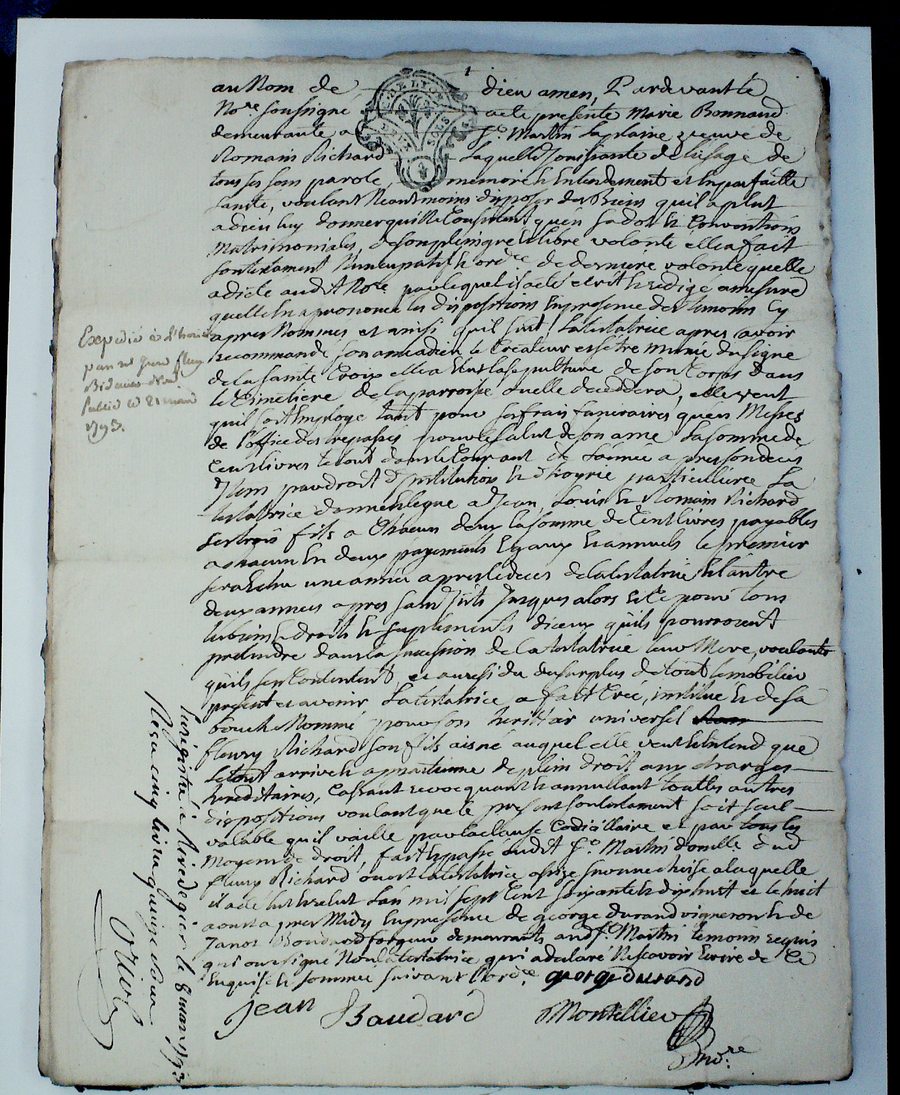 1
au Nom de dieu amen, Pardevant le
No.re soussigné a eté presente Marie Bonnand
demeurante a S.t Martin la plaine veuve de
Romain Richard Laquelle jouissante de l'usage de
tous ses sens parole memoire Entendement et En parfaitte
santé, voulant Neantmoins disposer des Biens qu'il a plut
a dieu luy donner qui Ne Consistent qu'en sa dot et Conventions
Matrimoniales, de son plein gré et libre volonté elle a fait
son testament Nuncupatif et ord.ce de derniere volonté quelle
a dicté audit No.re par lequel il a eté ecrit et redigé a mesure
quelle En a prononcé les dispositions En presence des temoins Cy
apres Nommés et ainsi quil suit. La testatrice apres avoir
recommandé son ame a dieu le Createur et setre Munie du signe
de la sainte Croix elle a Elu la sepulture de son Corps dans
le Cimetiere de la parroisse ou elle decedera, elle veut
quil soit Employé tant pour ses frais funeraires quen Messes
de l'office des trepassés pour le salut de son ame La somme de
Cent livres le tout dans le Courant de l'année a pres son deces
Item par droit d'Institution et d'hoyrie particulliere La
testatrice donne et legue a Jean, Louis et Romain Richard
ses trois fils a Chacun deux la somme de Cent livres payables
a chacun En deux payements Egaux et annuels le premier
sera Echu une année a pres le deces de la testatrice et l'autre
deux années apres sans Interets Jusques alors et Ce pour tous
les biens Et droits et suplements diceux quils pourroient
pretendre dans la succession de la testatrice leur Mere, voulante
quils sen Contentent, et au residu du surplus de tout le mobilier
present et avenir La testatrice a fait Créé, institué et de sa
bouche Nommé pour son heritier universel
fleury Richard son fils aisné auquel elle veut et Entend que
le tout arrive et appartienne de plein droit aux charges
hereditaires, Cassant revocquant et annullant touttes autres
dispositions voulant que le present son testament soit seul
valable quil vaille par la clause Codicillaire et par tous les
Moyens de droit, fait et passé audit S.t Martin domille dud
fleury Richard ou est la testatrice assise sur une chaise a laquelle
il a eté lut et relut L'an mil sept Cent soixante et dix huit et le huit
aoust a pres Midy En presence de george durand vigneron et de
Janot Boudard forgeur demeurants aud S.t Martin temoins requis
qui ont signé Non la testatrice qui a declaré Ne scavoir Ecrire de Ce
Enquise et sommée suivant l'ord.ce georges durand
Jean Baudard Montellier
no.re
Expedié à l'heritier
par nous
Bidaud
public ce 21 mars
1793.
Enregistré à Rivedegier le 8 mars 1793
Reçu cinq livres quinze sous